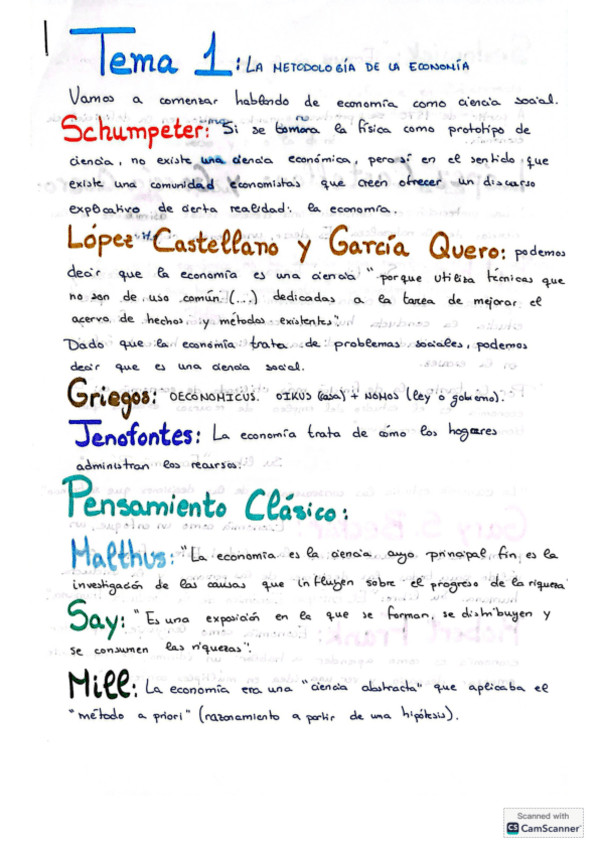 Tema 1: LA METODOLOGÍA DE LA ECONOMÍA
Vamos a comenzar hablando de economía como ciencia social.
Schumpeter: "Si se tomara la física como prototipo de
ciencia, no existe una ciencia económica, pero sí en el sentido que
existe una comunidad economistas que creen ofrecer un discurso
explicativo de cierta realidad: la economía.
López Castellano y García Quero: podemos
decir que la economía es una ciencia "porque utiliza técnicas que
no son de uso común (...) dedicadas a la tarea de mejorar el
acervo de hechos y métodos existentes".
Dado que la economía trata de problemas sociales, podemos
decir que es una ciencia social.
Griegos: OECONOMICUS. OIKUS (casa) + NOMOS (ley o gobierno).
Jenofontes: La economía trata de cómo los hogares
administran los recursos.
Pensamiento Clásico:
Malthus: "La economía es la ciencia cuyo principal fin es la
investigación de las causas que influyen sobre el progreso de la riqueza"
Say: "Es una exposición en la que se forman, se distribuyen y
se consumen las riquezas".
Mill: La economía era una "ciencia abstracta" que aplicaba el
"método a priori" (razonamiento a partir de una hipótesis).
Scanned with
CS CamScanner